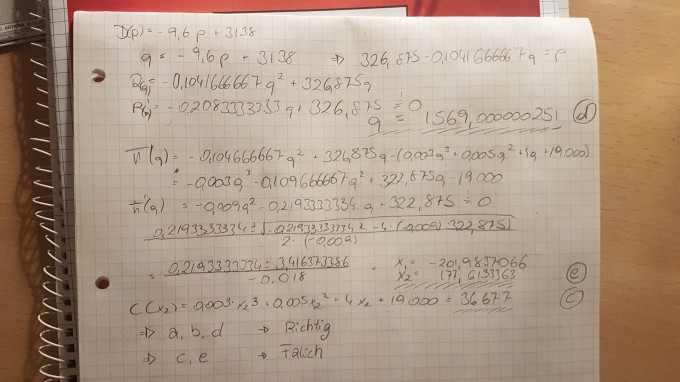 D(p) = - 9,6 p + 3138
q = - 9,6 p + 3138 => 326,875 - 0,1041666667 q = p
R(q) = - 0,1041666667 q² + 326,875 q
R'(q) = - 0,2083333333 q + 326,875 = 0
q = 1569,000000251 (d)
π(q) = - 0,104666667 q² + 326,875 q - (0,003 q³ + 0,005 q² + 4q + 19.000)
= - 0,003 q³ - 0,109666667 q² + 322,875 q - 19.000
π'(q) = - 0,009 q² - 0,2193333334 q + 322,875 = 0
0,2193333334 ± √-0,2193333334² - 4·(-0,009)·322,875
2·(-0,009)
= 0,2193333334 ± 3,416373386 = x₁ = -201,9837066
-0,018 x₂ = 177,6133363 (e)
C(x₂) = 0,003·x₂³ + 0,005 x₂² + 4 x₂ + 19.000 = 36677 (c)
=> a, b, d → Richtig
=> c, e → Falsch